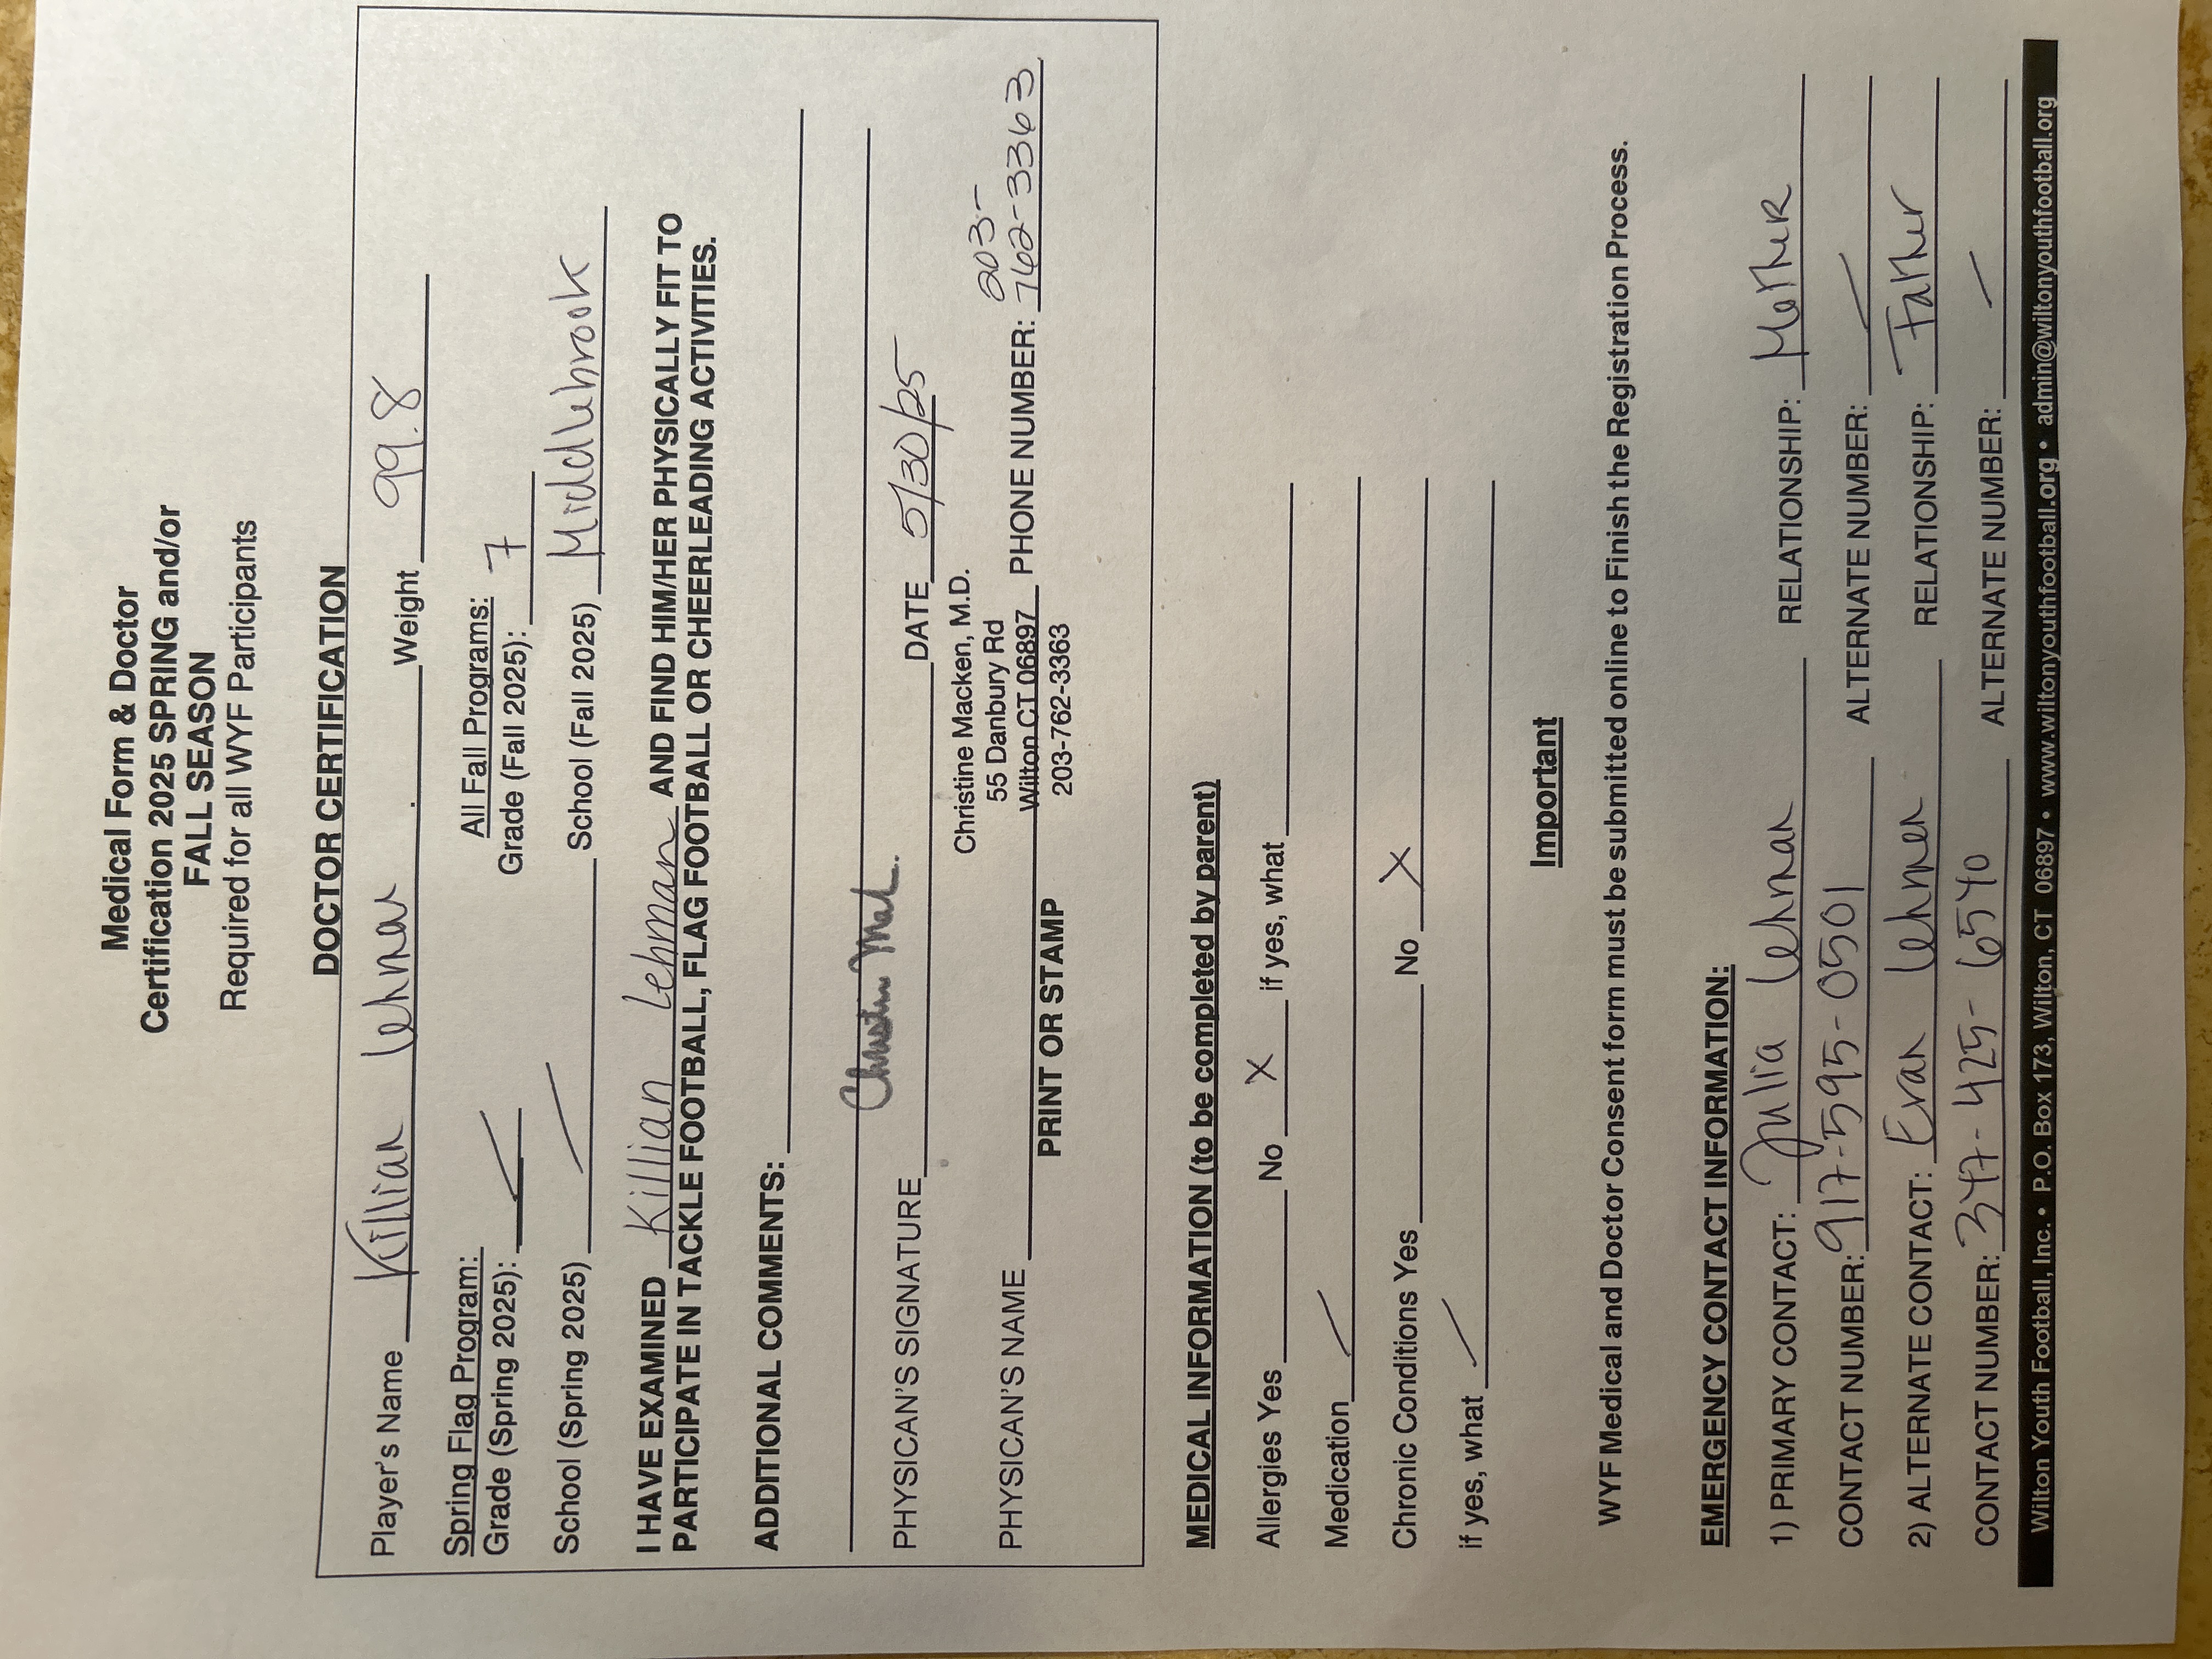 Medical Form & Doctor
Certification 2025 SPRING and/or
FALL SEASON
Required for all WYF Participants
DOCTOR CERTIFICATION
Player's Name Killian Lehman Weight 99.8
Spring Flag Program: All Fall Programs:
Grade (Spring 2025): Grade (Fall 2025): 7
School (Spring 2025) School (Fall 2025) Middlebrook
I HAVE EXAMINED Killian Lehman AND FIND HIM/HER PHYSICALLY FIT TO
PARTICIPATE IN TACKLE FOOTBALL, FLAG FOOTBALL OR CHEERLEADING ACTIVITIES.
ADDITIONAL COMMENTS:
PHYSICAN'S SIGNATURE Christine DATE 5/30/25
Christine Macken, M.D.
55 Danbury Rd
203-
PHYSICAN'S NAME Wilton CT 06897 PHONE NUMBER: 762-3363
PRINT OR STAMP 203-762-3363
MEDICAL INFORMATION (to be completed by parent)
Allergies Yes No X if yes, what
Medication
Chronic Conditions Yes No X
if yes, what
Important
WYF Medical and Doctor Consent form must be submitted online to Finish the Registration Process.
EMERGENCY CONTACT INFORMATION:
1) PRIMARY CONTACT: Julia Lehman RELATIONSHIP: Mother
CONTACT NUMBER: 917-595-0501 ALTERNATE NUMBER:
2) ALTERNATE CONTACT: Evan Lehman RELATIONSHIP: Father
CONTACT NUMBER: 347-425-6540 ALTERNATE NUMBER:
Wilton Youth Football, Inc. • P.O. Box 173, Wilton, CT 06897 • www.wiltonyouthfootball.org • admin@wiltonyouthfootball.org